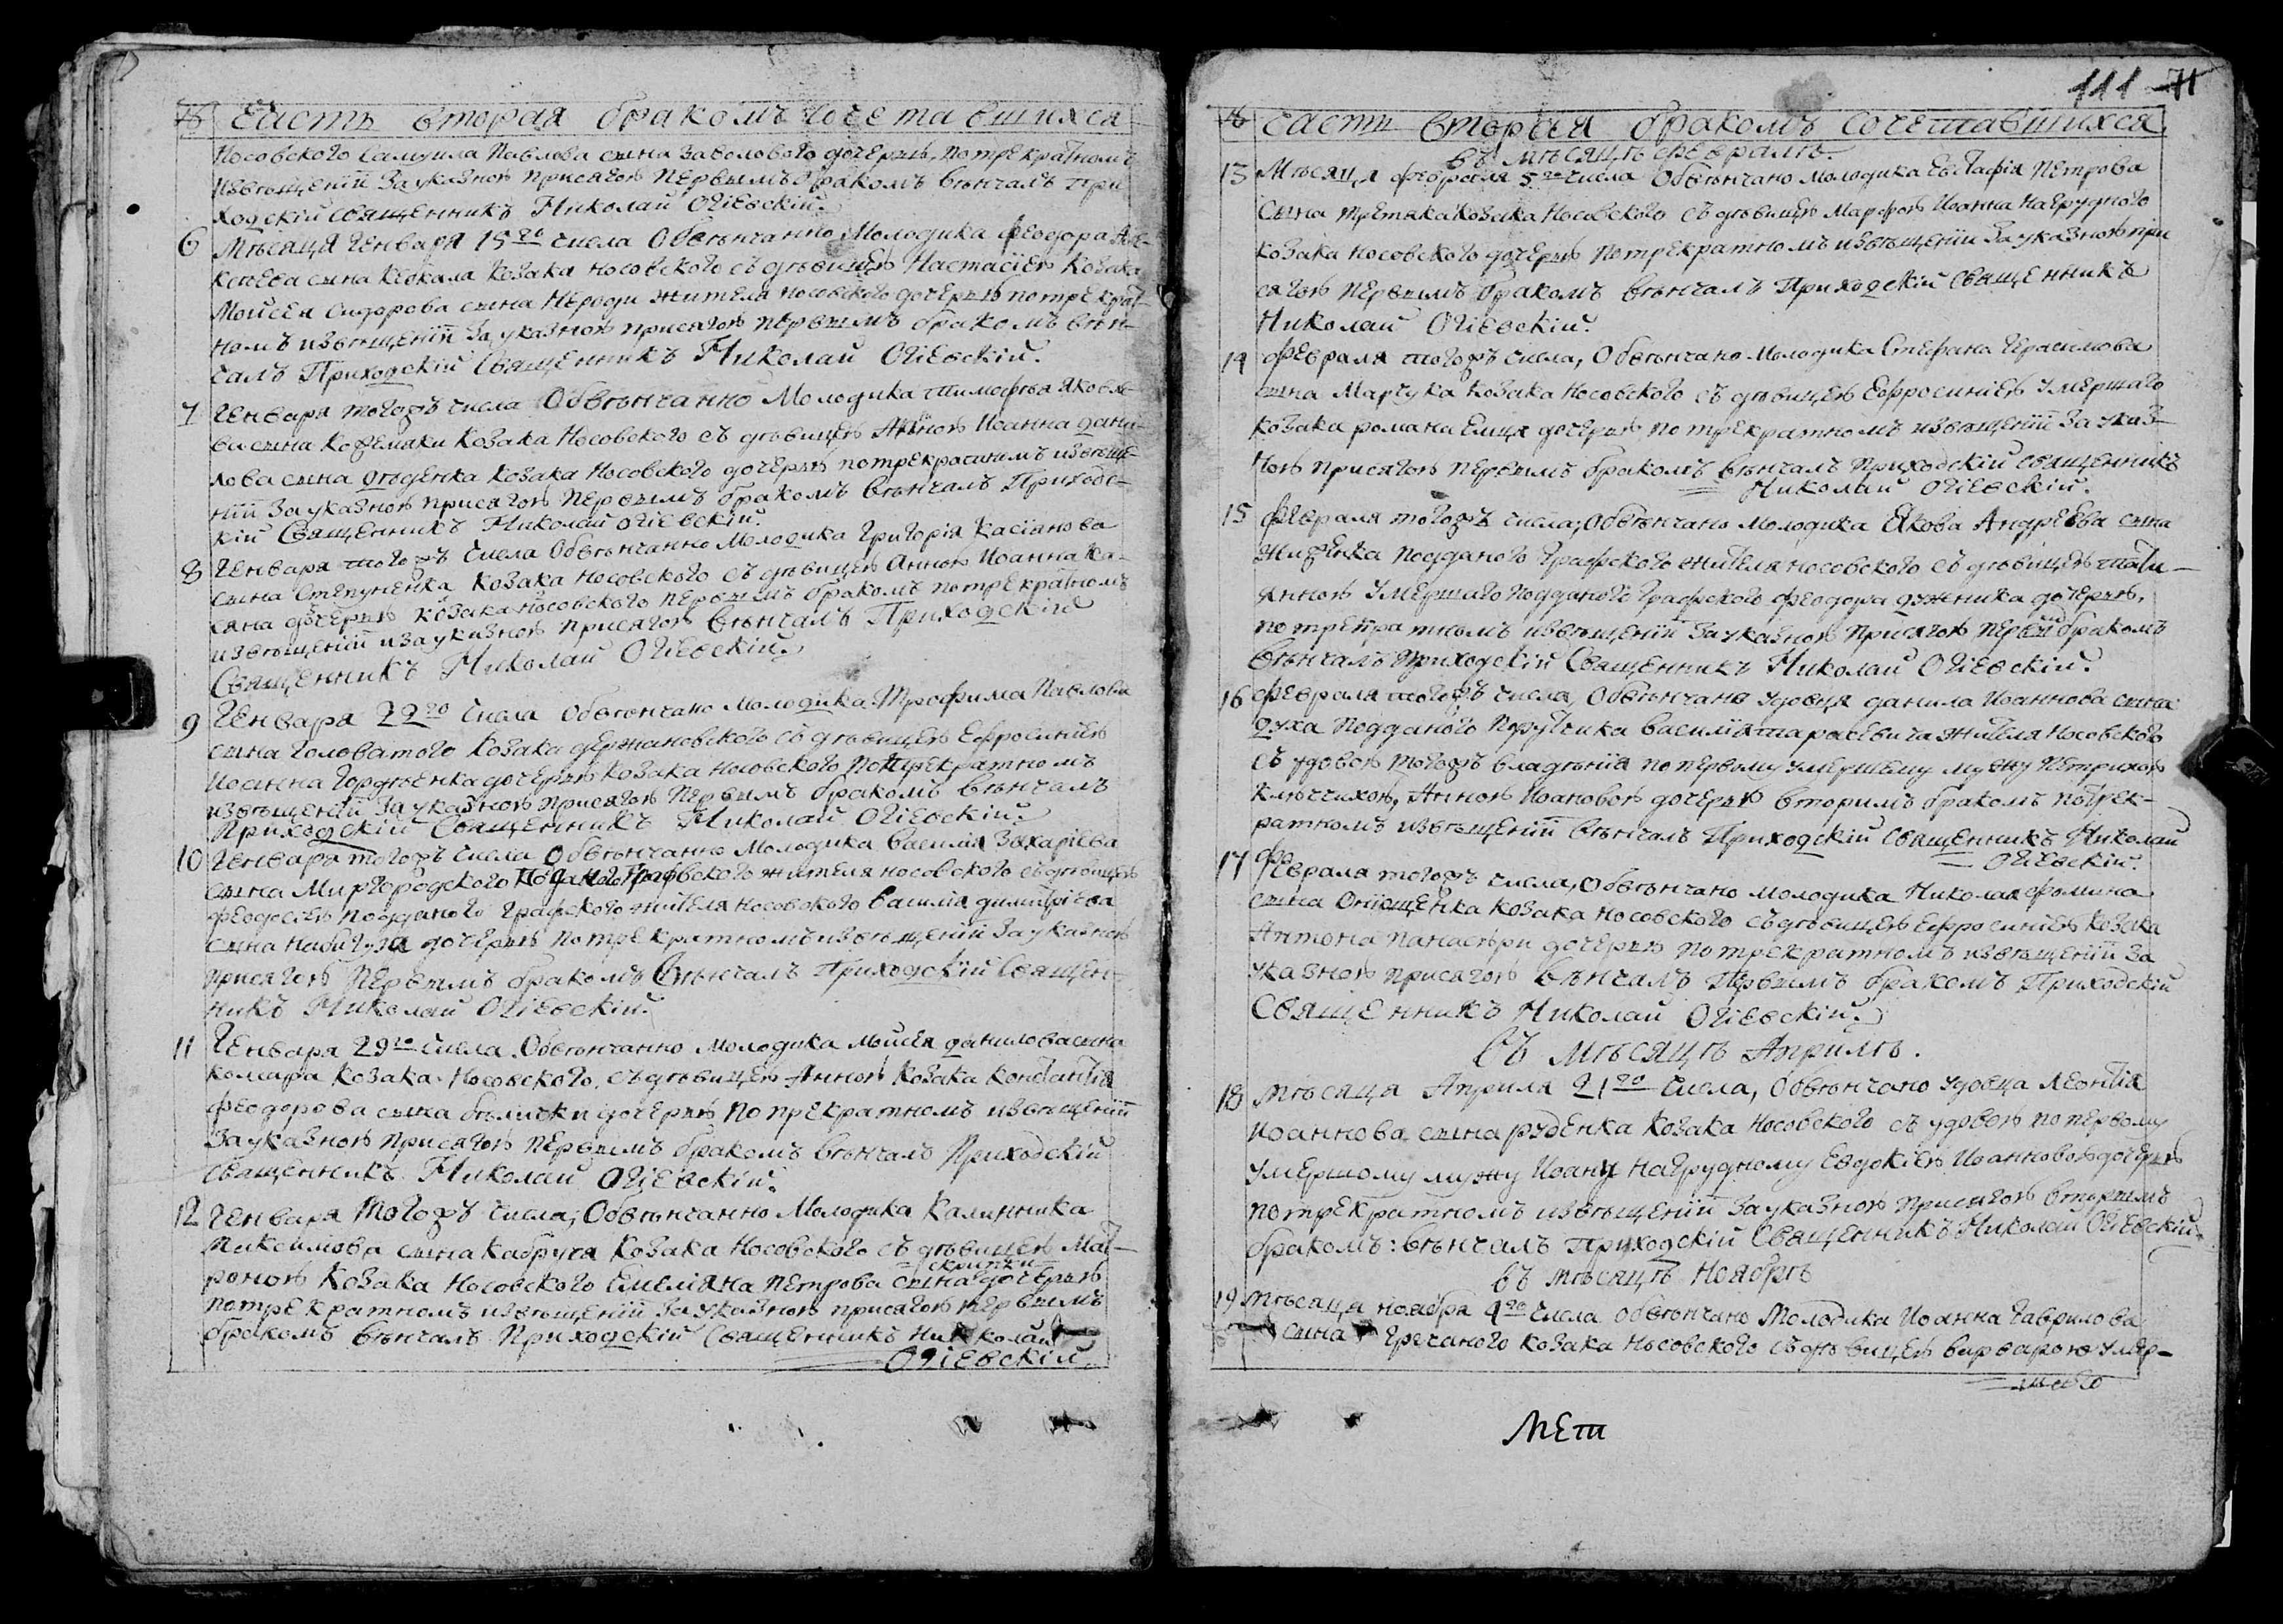 Часть вторая бракомъ сочетавшихся
Носовского Самуила Павлова сына Заволового дочерью, потрекратномъ
извѣщеніи зауказною присягою первымъ бракомъ вѣнчалъ При
ходскій священникъ Николай Огіевскій.
6 Мѣсяця генваря 15го числа Обвѣнчанно Молодика Феодора Але-
ксѣева сына козака носовского съ дѣвицею Настасіею Козака
Мойсея Сидорова сына Нероди жителя носовского дочерью потрекрат-
номъ извѣщеніи зауказною присягою первымъ бракомъ вѣн-
чалъ Приходскій Священникъ Николай Огіевскій.
7 Генваря тогожъ числа Обвѣнчанно Молодика Тимофѣя Яковле-
ва сына Кожемяки Козака Носовского съ дѣвицею Анною Иоанна Дани-
лова сына козака носовского дочерью потрекратнимъ извѣще-
ніи зауказною присягою первымъ бракомъ вѣнчалъ Приходс-
кій Священникъ Николай Огіевскій.
8 Генваря тогожъ числа Обвѣнчанно Молодика Григорія Касіянова
сына Степуненка козака носовского съ дѣвицею Анною Иоанна Ка-
сяна дочерью козака носовского первымъ бракомъ потрекратномъ
извѣщеніи изауказною присягою вѣнчалъ Приходскій
Священникъ Николай Огіевскій.
9 Генваря 22го числа Обвѣнчано Молодика Трофима Павлова
сына Головатого козака держановского съ дѣвицею Ефросиніею
Иоанна Гордѣенка дочерью козака носовского потрекратномъ
извѣщеніи зауказною присягою первымъ бракомъ вѣнчалъ
Приходскій Священникъ Николай Огіевскій.
10 Генваря тогожъ числа Обвѣнчанно Молодика Василія Захаріева
сына Миргородского жителя носовского съ дѣвицею
Феодосіею подданого графского жителя носовского Василія Димитріева
сына дочерью потрекратномъ извѣщеніи зауказною
присягою первымъ бракомъ вѣнчалъ Приходскій Священ-
никъ Николай Огіевскій.
11 Генваря 29го числа Обвѣнчанно Молодика Мойсея Данилова сына
Комара Козака Носовского, съ дѣвицею Анною козака Константія
Феодорова сына дочерью потрекратномъ извѣщеніи
зауказною присягою первымъ бракомъ вѣнчалъ Приходскій
Священникъ Николай Огіевскій.
12 Генваря тогожъ числа, Обвѣнчанно Молодика Калинника
Максимова сына козака носовского съ дѣвицею Мат-
роною Козака Носовского Емеліяна Петрова сына Скрипки дочерью
потрекратномъ извѣщеніи зауказною присягою первымъ
бракомъ вѣнчалъ Приходскій Священникъ Николай
Огіевскій.
111
Часть вторая бракомъ сочетавшихся
въ мѣсяцѣ Февралѣ.
13 Мѣсяця февраля 5го числа Обвѣнчано Молодика Петрова
сына Третяка козака носовского съ дѣвицею Марфою Иоанна Нагрудного
козака носовского дочерью потрекратномъ извѣщеніи зауказною при
сягою первымъ бракомъ вѣнчалъ Приходскій Священникъ
Николай Огіевскій.
14 Февраля тогожъ числа, Обвѣнчано Молодика Стефана Герасимова
сына Марчука козака носовского съ дѣвицею Ефросиніею умершаго
козака Романа Емця дочерью потрекратномъ извѣщеніи зауказ-
ною присягою первымъ бракомъ вѣнчалъ Приходскій Священникъ
Николай Огіевскій.
15 Февраля тогожъ числа, Обвѣнчано Молодика Якова Андреева сына
подданого графского жителя носовского съ дѣвицею Тати-
янною умершаго подданого графского Феодора Дужника дочерью,
потрекратномъ извѣщеніи зауказною присягою первымъ бракомъ
вѣнчалъ Приходскій Священникъ Николай Огіевскій.
16 Февраля тогожъ числа, Обвѣнчано удовця Данила Иоаннова сына
Духа подданого поручика Василія Тарасевича жителя носовского
съ удовою тогожъ владѣнія попервому умершему мужу Петрихою
Анною Иоановою дочерью вторимъ бракомъ потрек-
ратномъ извѣщеніи вѣнчалъ Приходскій Священникъ Николай
Огіевскій.
17 Февраля тогожъ числа, Обвѣнчано Молодика Николая Фомина
сына Онищенка козака носовского съ дѣвицею Ефросиніею козака
Антона дочерью потрекратномъ извѣщеніи за
указною присягою вѣнчалъ Первымъ бракомъ Приходскій
Священникъ Николай Огіевскій.
Въ мѣсяцѣ Априлѣ.
18 Мѣсяца Априля 21го числа, Обвѣнчано удовца Леонтія
Иоаннова сына Руденка козака носовского съ удовою попервому
умершому мужу Иоану Нагрудному Евдокіею Иоанновою дочерью
потрекратномъ извѣщеніи зауказною присягою вторымъ
бракомъ: вѣнчалъ Приходскій Священникъ Николай Огіевскій.
въ мѣсяцѣ Ноябрѣ
19 Мѣсяца ноября 9го числа обвѣнчано Молодика Иоанна Гаврилова
сына Гречаного козака носовского съ дѣвицею Варварою умер-
шого
Мет